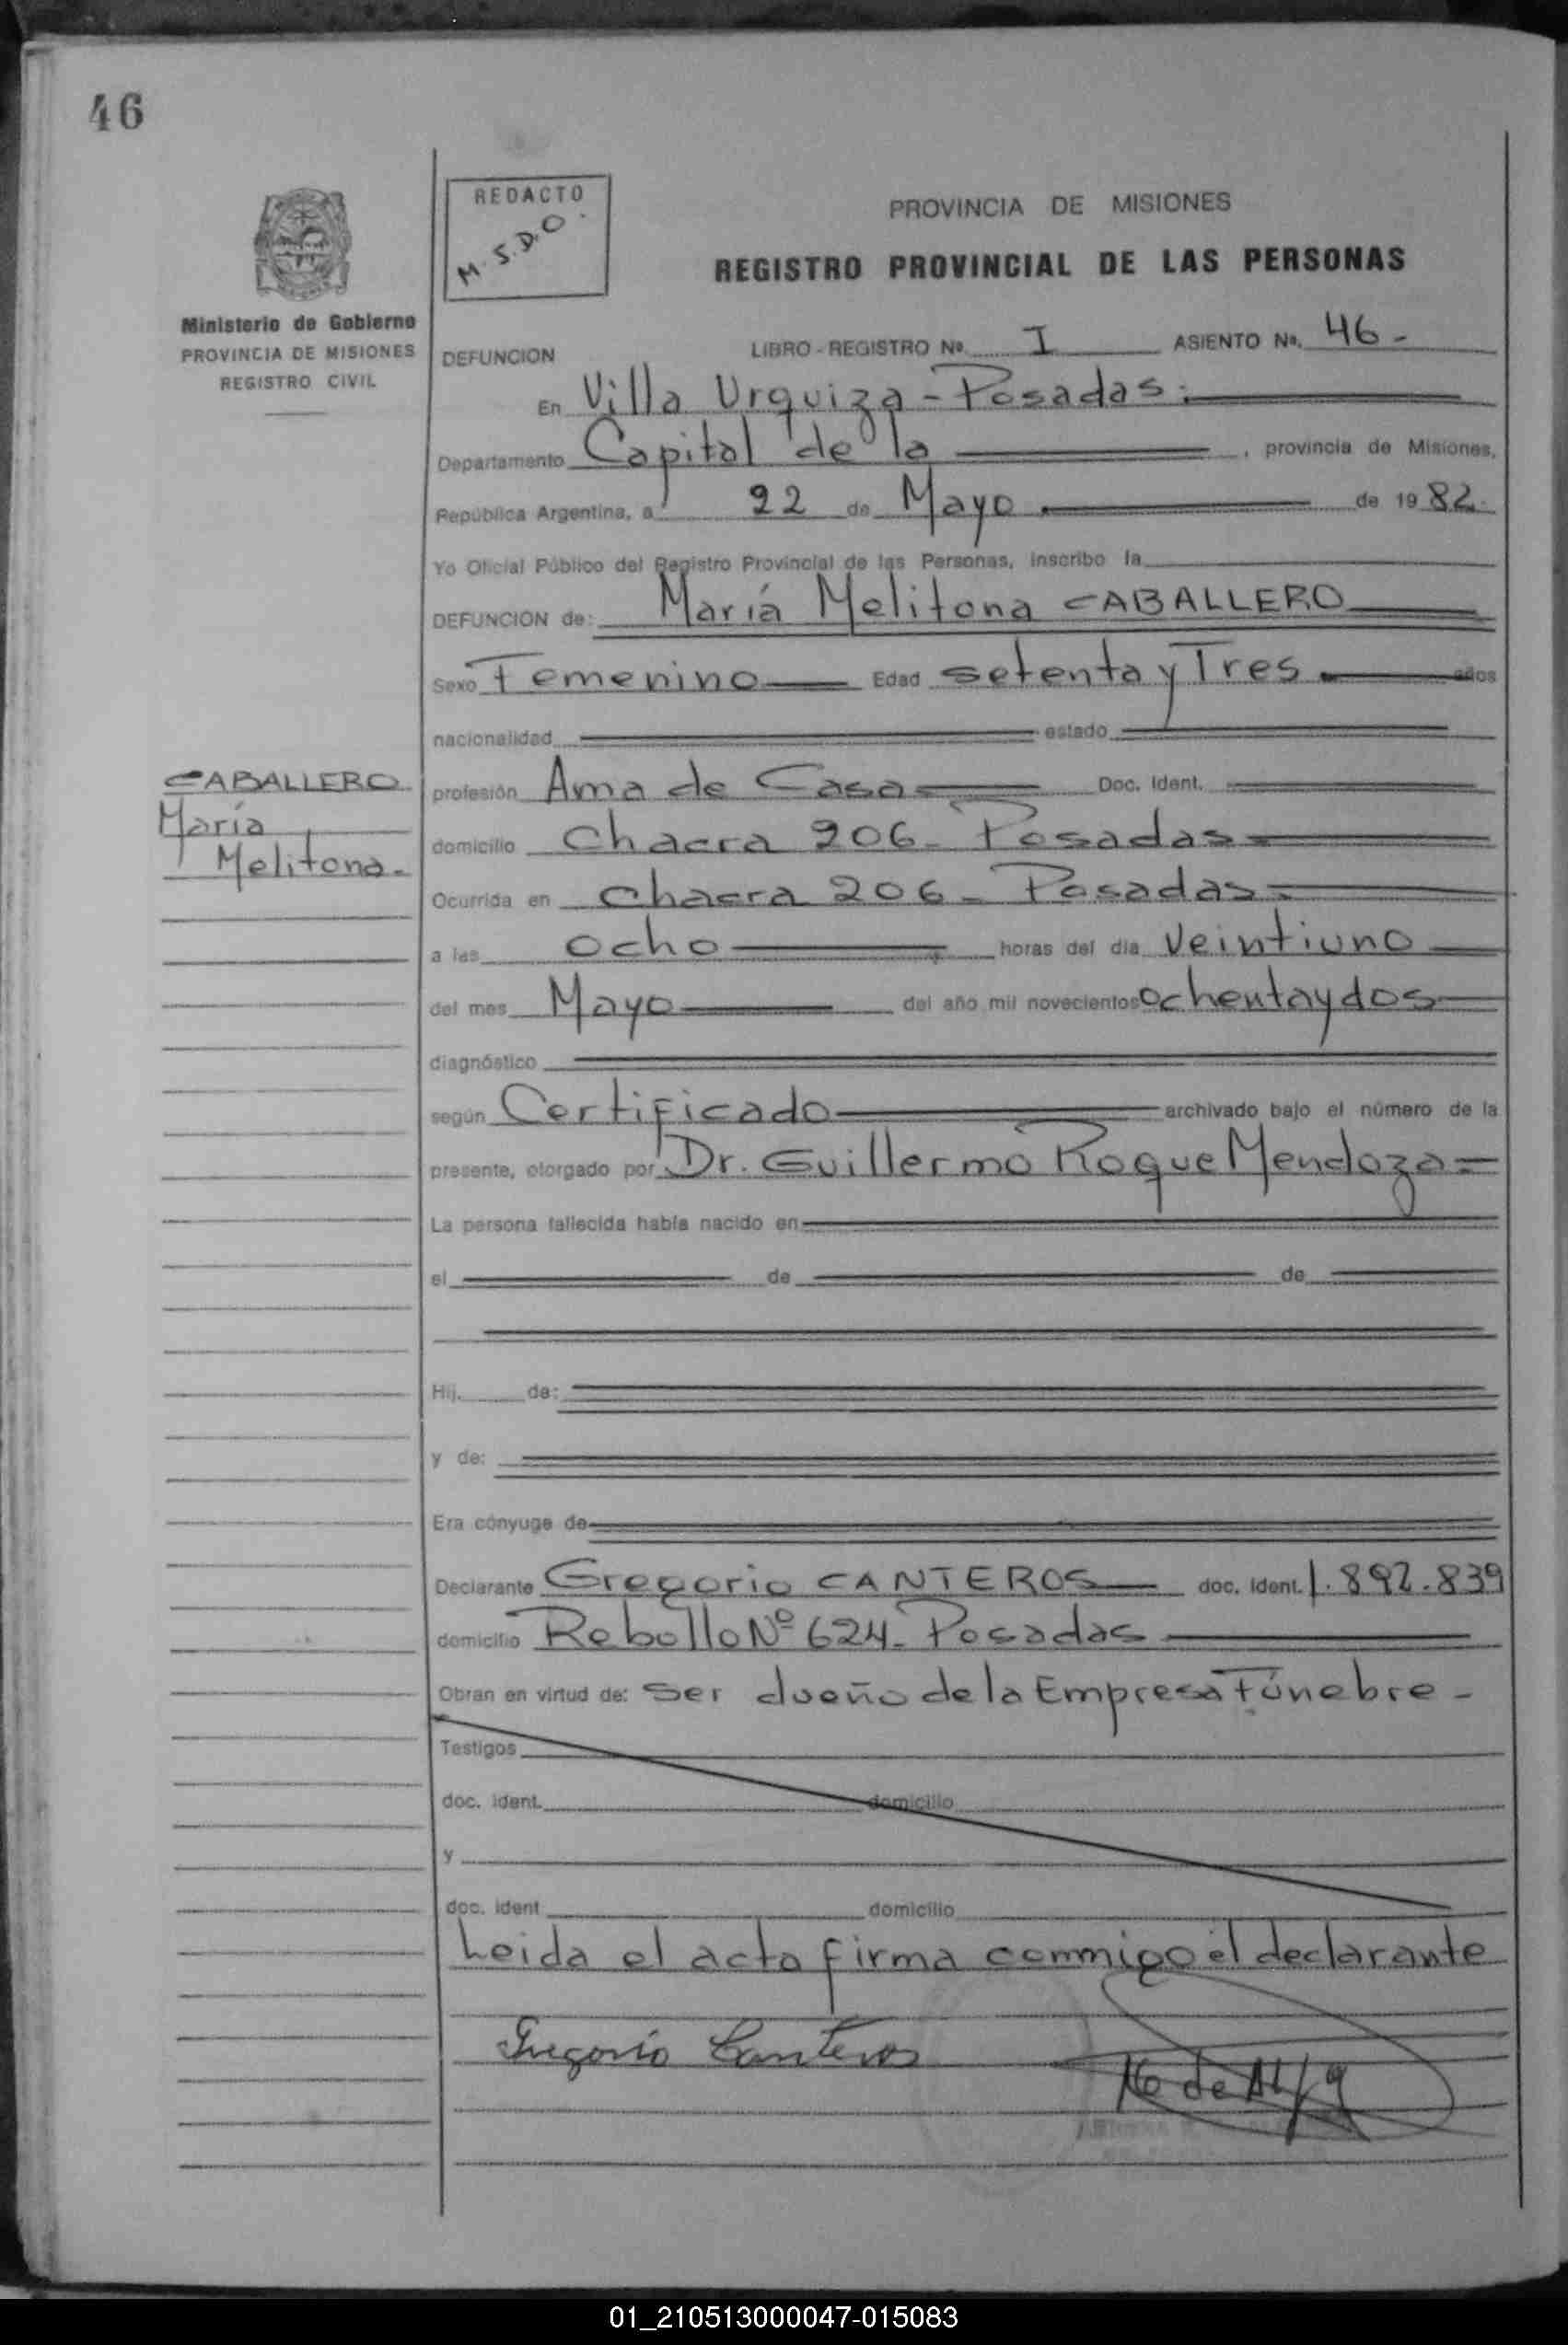 46
REDACTO
M. S.D.O.
PROVINCIA DE MISIONES
REGISTRO PROVINCIAL DE LAS PERSONAS
Ministerio de Gobierno
PROVINCIA DE MISIONES
REGISTRO CIVIL
DEFUNCION LIBRO - REGISTRO Nº I ASIENTO Nº. 46 -
En Villa Urquiza - Posadas.
Departamento Capital de la , provincia de Misiones,
República Argentina, a 22 de Mayo de 1982.
Yo Oficial Público del Registro Provincial de las Personas, inscribo la
DEFUNCION de: María Melitona CABALLERO
Sexo Femenino Edad setenta y Tres años
nacionalidad estado
CABALLERO
María
Melitona.
profesión Ama de Casa Doc. Ident.
domicilio Chacra 206 - Posadas
Ocurrida en Chacra 206 - Posadas.
a las Ocho horas del día Veintiuno
del mes Mayo del año mil novecientos Ochentaydos
diagnóstico
según Certificado archivado bajo el número de la
presente, otorgado por Dr. Guillermo Roque Mendoza
La persona fallecida había nacido en
el de de
Hij. de:
y de:
Era cónyuge de
Declarante Gregorio CANTEROS doc. Ident. 1.892.839
domicilio Rebollo Nº 624 - Posadas
Obran en virtud de: Ser dueño de la Empresa Fúnebre -
Testigos
doc. ident. domicilio
y
doc. ident domicilio
Leida el acta firma conmigo el declarante
Gregorio Canteros
01_210513000047-015083